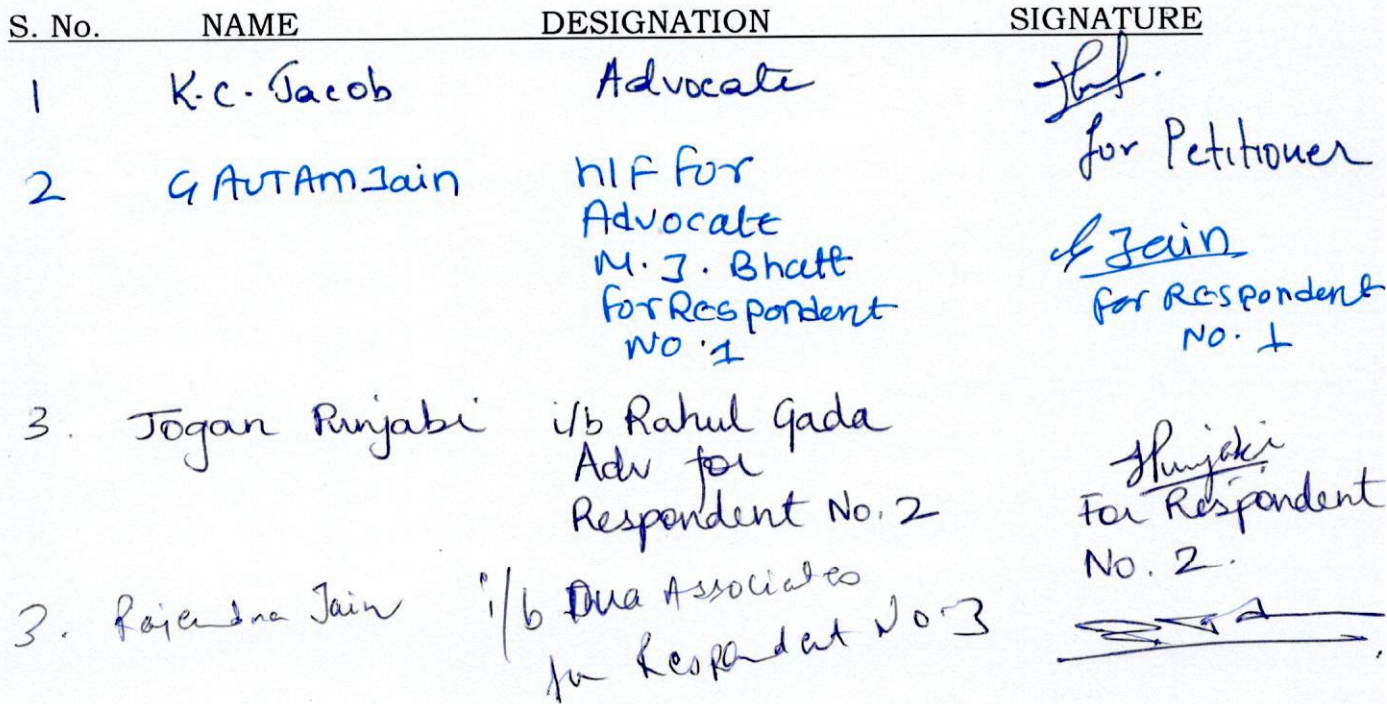 S. No. NAME DESIGNATION SIGNATURE
1 K.C. Jacob Advocate
for Petitioner
2 GAUTAM Jain hIF for
Advocate
M. J. Bhatt
for Respondent
NO. 1
Jain
for Respondent
NO. 1
3. Jogan Punjabi i/b Rahul Gada
Adv for
Respondent No. 2
Punjabi
For Respondent
No. 2.
3. Rajendra Jain i/b Dua Associates
for Respondent No. 3